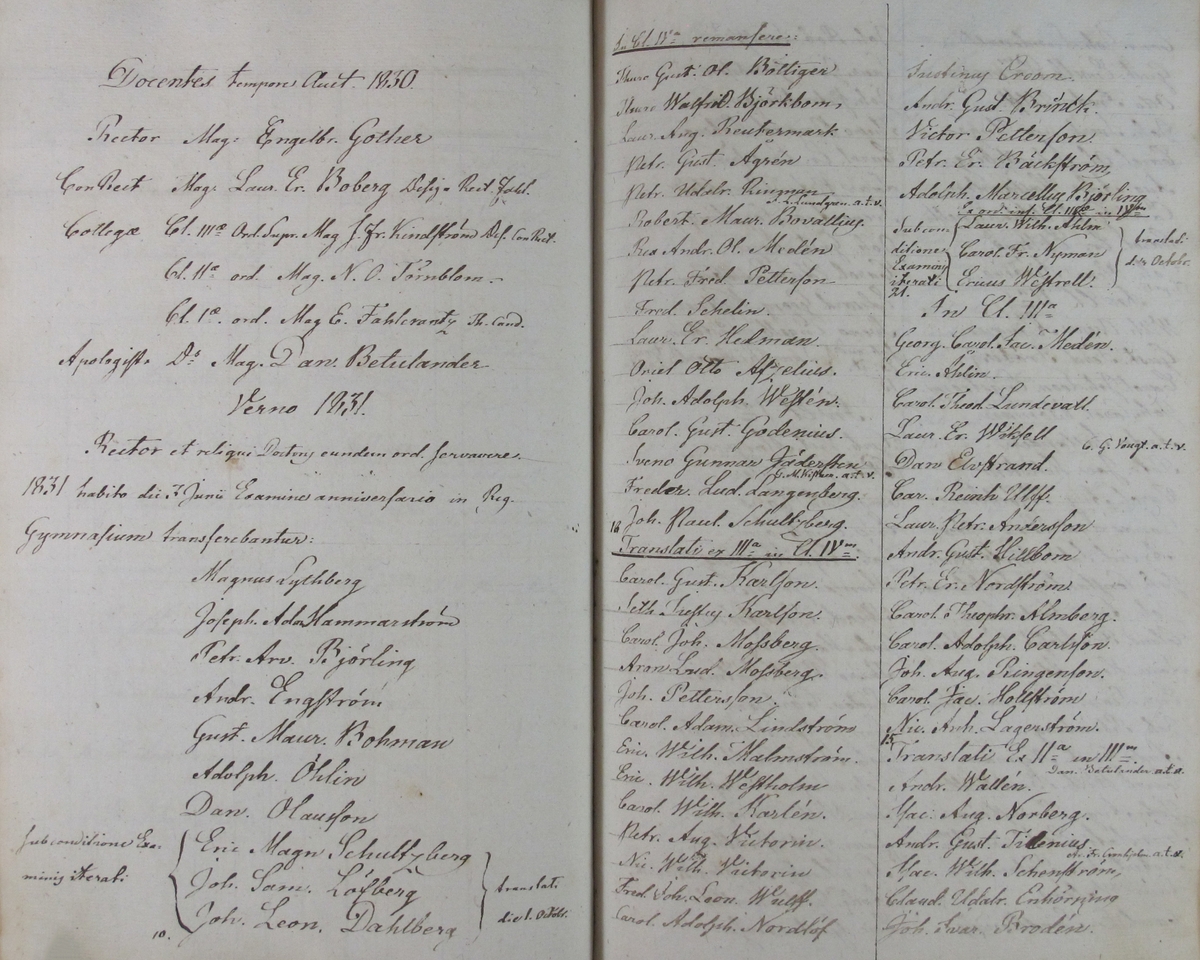 Docentes tempore Auct. 1830.
Rector Mag. Engelbr. Gother
ConRect Mag. Laur. Er. Boberg Design. Rect. Fahl.
Collegæ Cl. IIIæ Ord. Supr. Mag J. Fr. Kindström Des. ConRect.
Cl. IIæ ord. Mag. N. O. Törnblom
Cl. Iæ. ord. Mag E. Fahlcrantz Th. Cand.
Apologist. Ds Mag. Dan. Betulander
Verno 1831.
Rector et reliqui Docentes eundem ord. servavere.
1831 habito die Junii Examine anniversario in Reg.
Gymnasium transferebantur:
Magnus Sythberg
Joseph. Ad. Hammarström
Petr. Arv. Björling
Andr. Engström
Gust. Maur. Bohman
Adolph. Öhlin
Dan. Olausson
Sub conditione Exa-
minis iterati
Eric Magn Schultzberg
Joh. Sam. Löfberg
Joh. Leon. Dahlberg
translati
die 1. Octobr.
10.
In Cl. IVa remansere:
Thure Gust. Ol. Böttiger
Thure Walfrid. Björkbom
Laur. Aug. Reutermark
Petr. Gust. Ågrén
Petr. Udalr. Ringman
J. L. Lundgren a.t.v.
Robert. Maur. Bovallius
Andr. Ol. Medén
Petr. Fred. Petterson
Fred. Schelin.
Laur. Er. Hedman.
Oriel Otto Afzelius.
Joh. Adolph. Westén.
Carol. Gust. Godenius.
Sveno Gunnar Jädersten
Freder. Lud. Langenberg.
16 Joh. Paul. Schultzberg.
Translati ex IIIa in Cl. IVm.
Carol. Gust. Karlson.
Seth. Karlson.
Carol. Joh. Mossberg.
Aron. Lud. Mossberg.
Joh. Petterson.
Carol. Adam. Lindström
Eric. Wilh. Malmström.
Eric. Wilh. Westholm
Carol. Wilh. Karlén.
Petr. Aug. Victorin.
Nic. Wilh. Victorin
Fred. Joh. Leon. Wulff.
Carol. Adolph. Nordlöf
Justinus Croon.
Andr. Gust. Brinck.
Victor Petterson.
Petr. Er. Bäckström,
Adolph. Marcellus Björling
Sub con-
ditione
Examinis
iterati
21.
Laur. Wilh. Ahlm
Carol. Fr. Nyman
Ericus Westroll.
translati
d. 1 Octobr.
In Cl. IIIa
Georg. Carol. Jac. Medén.
Eric. Åhlin.
Carol. Theod. Lundevall
Laur. Er. Wiksell
C. G. Vougt. a.t.v.
Dan Elfstrand.
Car. Reinh Ulff.
Laur. Petr. Andersson
Andr. Gust. Hillbom
Petr. Er. Nordström
Carol. Theophr. Almberg.
Carol. Adolph. Carlsson.
Joh. Aug. Ringenson.
Carol. Jac. Hollström
Nic. Anh. Lagerström.
15. Translati Ex IIa in IIIm.
Dan. Betulander a.t.v.
Andr. Wallén.
Isac. Aug. Norberg.
Andr. Gust. Tillenius
Isac. Wilh. Schenström,
Claud. Udalr. Enhörning
Joh. Ivar. Brodén.